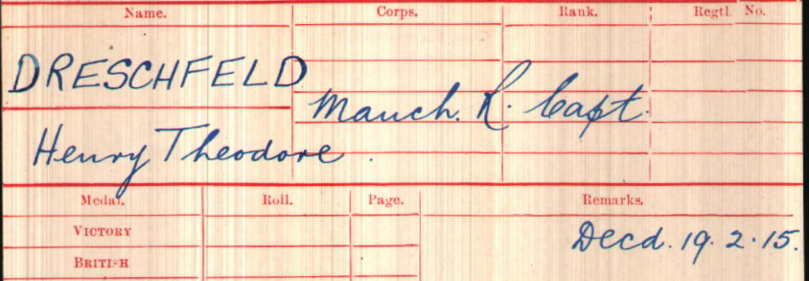 Name. Corps. Rank. Regtl. No.
DRESCHFELD
Manch. R. Capt.
Henry Theodore.
Medal. Roll. Page. Remarks.
VICTORY
Decd. 19. 2. 15.
BRITISH